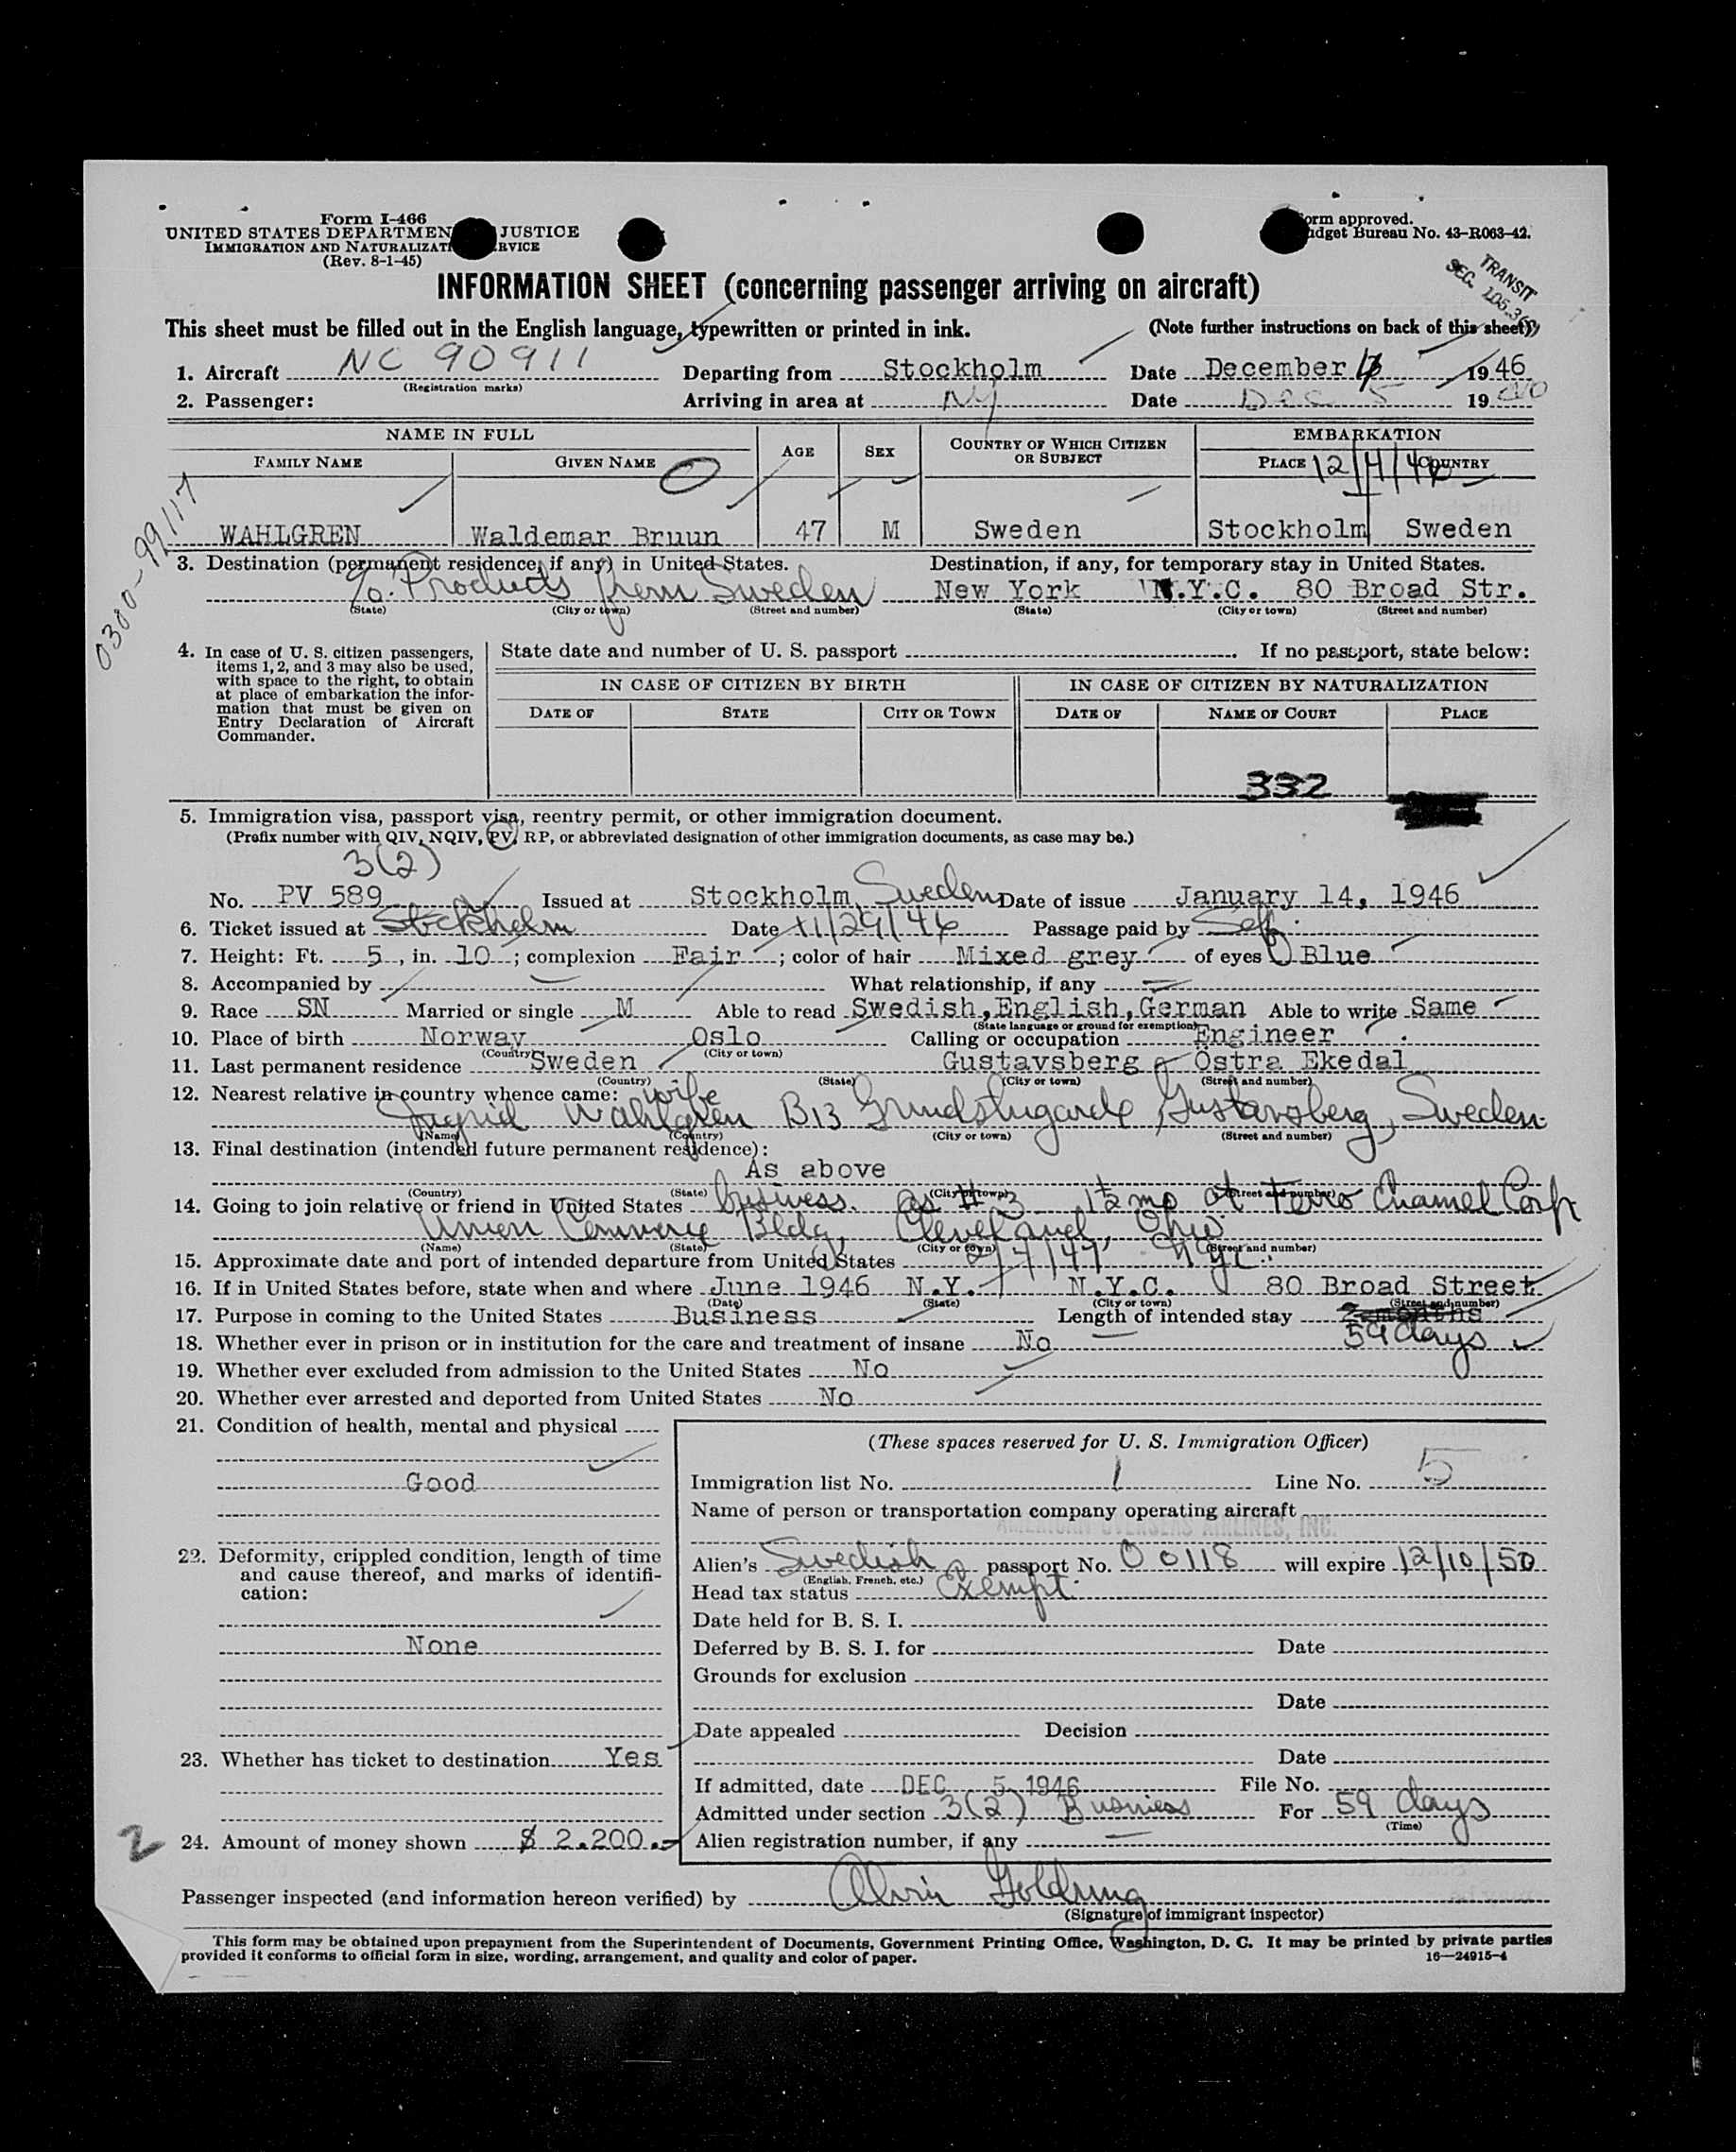 Form I-466
UNITED STATES DEPARTMEN JUSTICE
IMMIGRATION AND NATURALIZATI RVICE
(Rev. 8-1-45)
orm approved.
udget Bureau No. 43-R063-42.
TRANSIT
SEC. 105.3
INFORMATION SHEET (concerning passenger arriving on aircraft)
This sheet must be filled out in the English language, typewritten or printed in ink. (Note further instructions on back of this sheet)
1. Aircraft NC 90911 Departing from Stockholm Date December 1946
(Registration marks)
2. Passenger: Arriving in area at NY Date Dec 5 19
NAME IN FULL AGE SEX COUNTRY OF WHICH CITIZEN OR SUBJECT EMBARKATION
FAMILY NAME GIVEN NAME PLACE 12/4/46 COUNTRY
WAHLGREN Waldemar Bruun 47 M Sweden Stockholm Sweden
0300-99117
3. Destination (permanent residence, if any) in United States. Destination, if any, for temporary stay in United States.
% Products from Sweden New York N.Y.C. 80 Broad Str.
(State) (City or town) (Street and number) (State) (City or town) (Street and number)
4. In case of U. S. citizen passengers, items 1, 2, and 3 may also be used, with space to the right, to obtain at place of embarkation the information that must be given on Entry Declaration of Aircraft Commander.
State date and number of U. S. passport If no passport, state below:
IN CASE OF CITIZEN BY BIRTH IN CASE OF CITIZEN BY NATURALIZATION
DATE OF STATE CITY OR TOWN DATE OF NAME OF COURT PLACE
332
5. Immigration visa, passport visa, reentry permit, or other immigration document.
(Prefix number with QIV, NQIV, PV, RP, or abbreviated designation of other immigration documents, as case may be.)
3(2)
No. PV 589 Issued at Stockholm, Sweden Date of issue January 14, 1946
6. Ticket issued at Stockholm Date 11/29/46 Passage paid by Self
7. Height: Ft. 5, in. 10; complexion Fair; color of hair Mixed grey of eyes Blue
8. Accompanied by What relationship, if any
9. Race SN Married or single M Able to read Swedish, English, German Able to write Same
(State language or ground for exemption)
10. Place of birth Norway Oslo Calling or occupation Engineer
(Country) (City or town)
11. Last permanent residence Sweden Gustavsberg Östra Ekedal
(Country) (State) (City or town) (Street and number)
12. Nearest relative in country whence came: wife
Ingrid Wahlgren B13 Grindstugarde, Gustavsberg, Sweden.
(Name) (Country) (City or town) (Street and number)
13. Final destination (intended future permanent residence):
As above
(Country) (State) (City or town) (Street and number)
14. Going to join relative or friend in United States business. as # 3 1½ mo at Ferro Enamel Corp
Union Commerce Bldg, Cleveland, Ohio
(Name) (State) (City or town) (Street and number)
15. Approximate date and port of intended departure from United States 2/4/47 NYC.
16. If in United States before, state when and where June 1946 N.Y. N.Y.C. 80 Broad Street
(Date) (State) (City or town) (Street and number)
17. Purpose in coming to the United States Business Length of intended stay 2 months
59 days
18. Whether ever in prison or in institution for the care and treatment of insane No
19. Whether ever excluded from admission to the United States No
20. Whether ever arrested and deported from United States No
21. Condition of health, mental and physical
Good
22. Deformity, crippled condition, length of time and cause thereof, and marks of identification:
None
23. Whether has ticket to destination Yes
2
24. Amount of money shown $ 2.200.-
(These spaces reserved for U. S. Immigration Officer)
Immigration list No. 1 Line No. 5
Name of person or transportation company operating aircraft
AMERICAN OVERSEAS AIRLINES, INC.
Alien's Swedish passport No. 00118 will expire 12/10/50
(English, French, etc.)
Head tax status Exempt
Date held for B. S. I.
Deferred by B. S. I. for Date
Grounds for exclusion
Date
Date appealed Decision
Date
If admitted, date DEC 5 1946 File No.
Admitted under section 3(2) Business For 59 days
(Time)
Alien registration number, if any
Passenger inspected (and information hereon verified) by Alvin Goldring
(Signature of immigrant inspector)
This form may be obtained upon prepayment from the Superintendent of Documents, Government Printing Office, Washington, D. C. It may be printed by private parties
provided it conforms to official form in size, wording, arrangement, and quality and color of paper. 16—24915-4